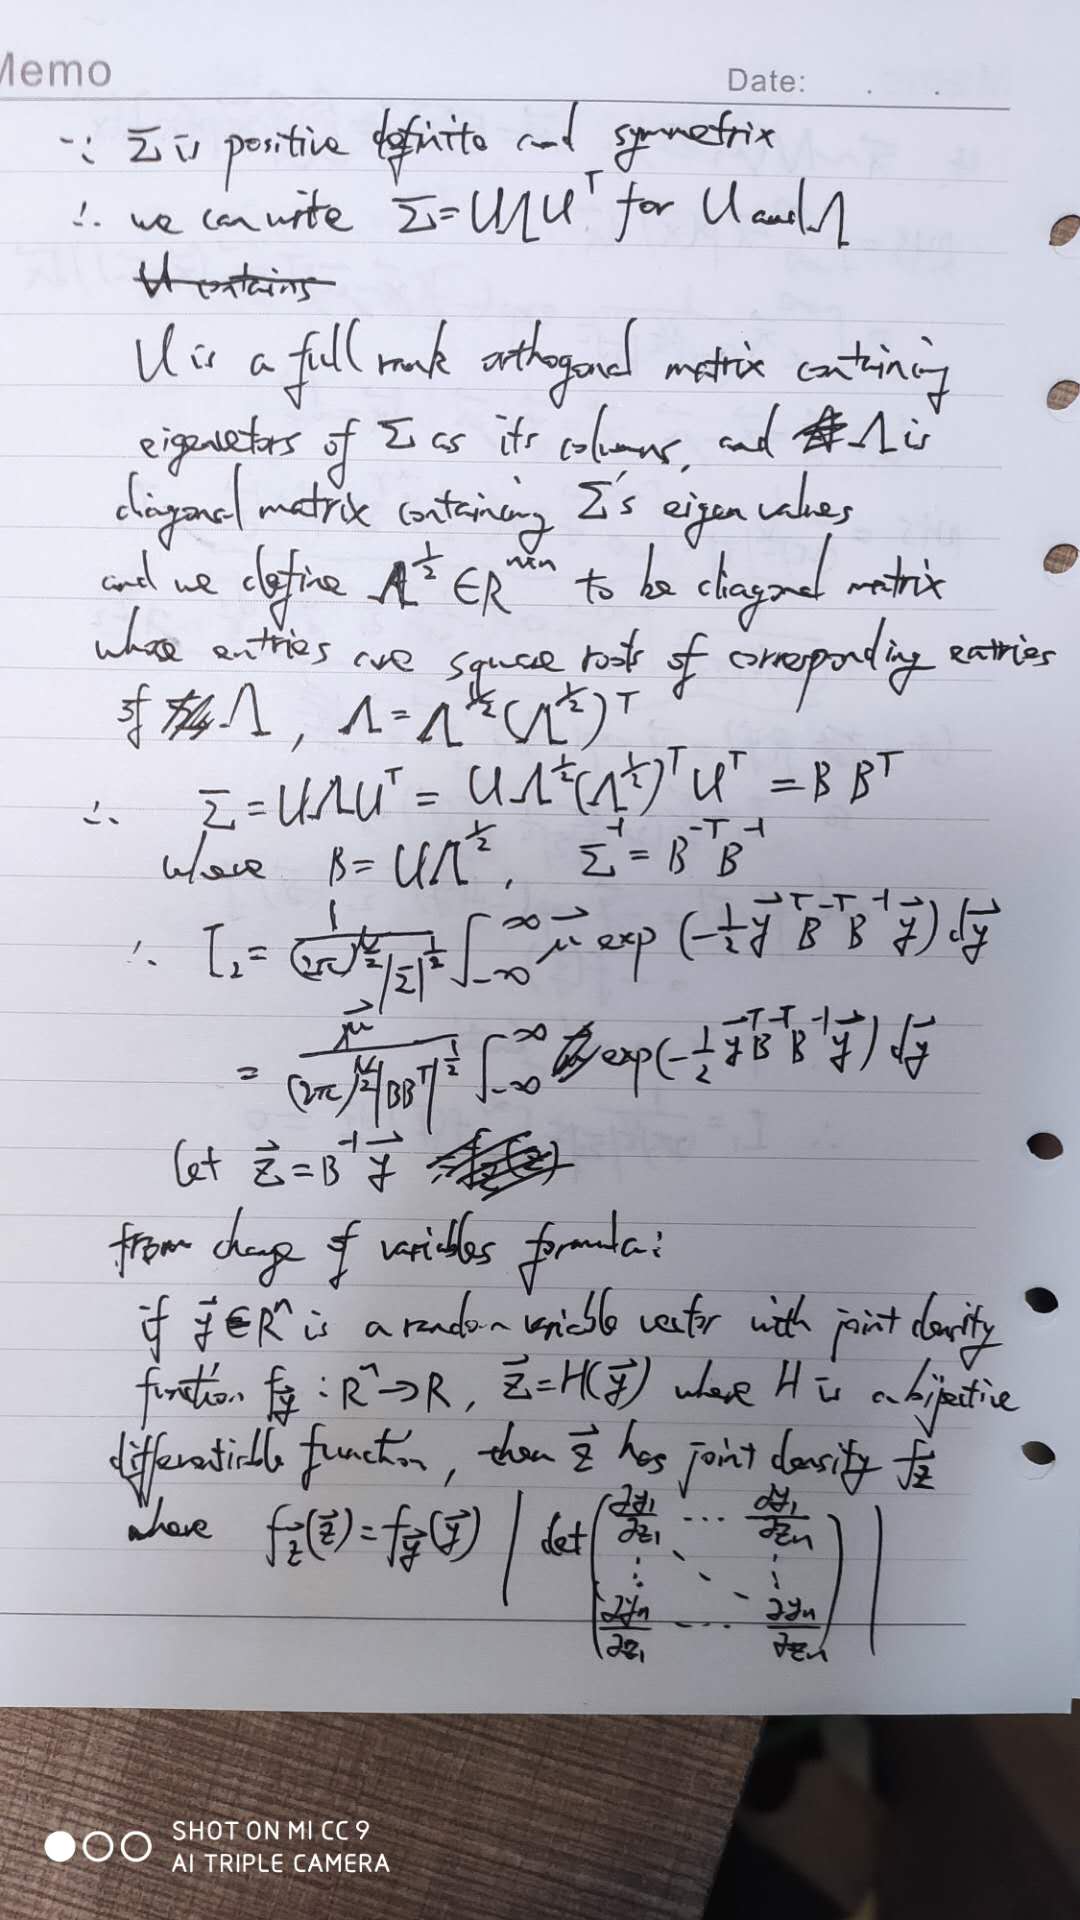 Memo
Date: . .
∵ Σ is positive definite and symmetrix
∴ we can write Σ=UΛUᵀ for U and Λ
U contains
U is a full rank orthogonal matrix containing
eigenvetors of Σ as its columns, and Λ is
diagonal matrix containing Σ's eigen values
and we define Λ^½ ∈ R^{n×n} to be diagonal matrix
whose entries are square roots of corresponding entries
of Λ, Λ = Λ^½(Λ^½)ᵀ
∴ Σ = UΛUᵀ = UΛ^½(Λ^½)ᵀUᵀ = B Bᵀ
where B = UΛ^½, Σ⁻¹ = B^{-T}B⁻¹
∴ I₂ = 1/((2π)^{n/2}|Σ|^½) ∫_{-∞}^{∞} μ⃗ exp(-½ y⃗ᵀB^{-T}B⁻¹y⃗) dy⃗
= μ⃗/((2π)^{n/2}|BBᵀ|^½) ∫_{-∞}^{∞} exp(-½ y⃗ᵀB^{-T}B⁻¹y⃗) dy⃗
Let z⃗ = B⁻¹y⃗
from change of variables formula:
if y⃗ ∈ Rⁿ is a random variable vector with joint density
function f_y⃗ : Rⁿ → R, z⃗ = H(y⃗) where H is a bijective
differentiable function, then z⃗ has joint density f_z⃗
where f_z⃗(z⃗) = f_y⃗(y⃗) | det ( ∂y₁/∂z₁ ... ∂y₁/∂zₙ
⋮ ⋱ ⋮
∂yₙ/∂z₁ ... ∂yₙ/∂zₙ ) |
SHOT ON MI CC 9
AI TRIPLE CAMERA